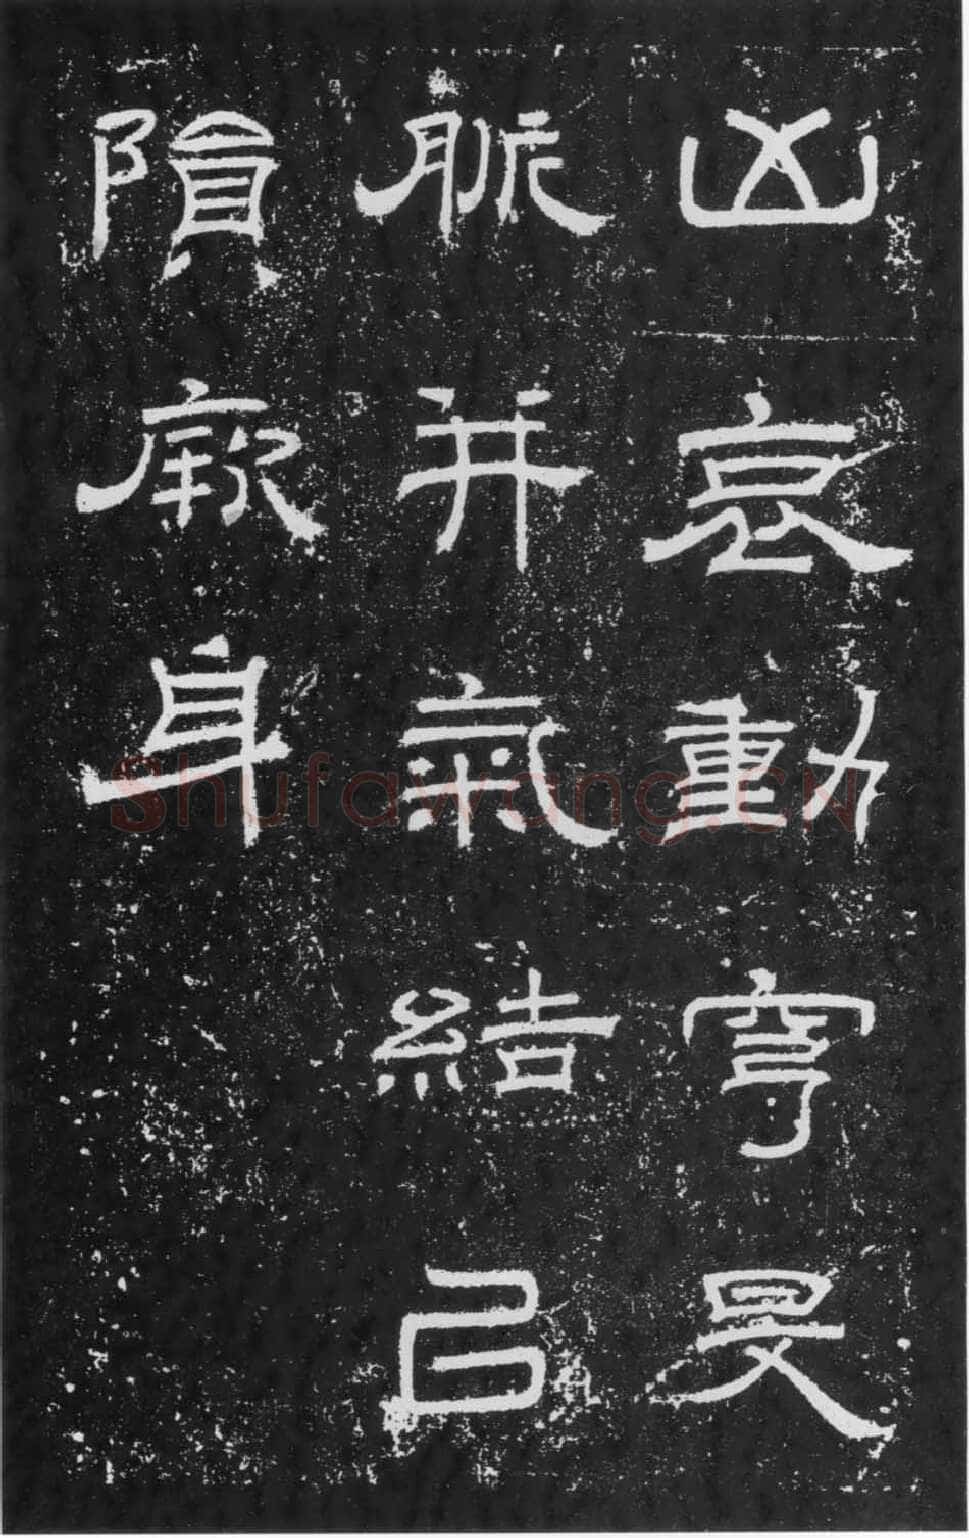 凶哀動穹旻
脈并氣結㠯
隕厥身
Shufawang.CN